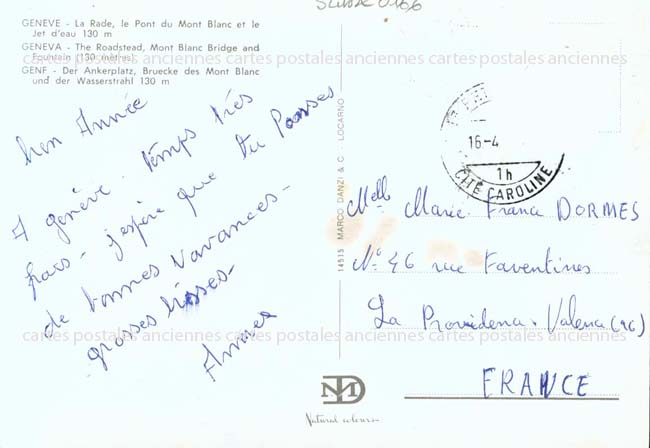 Suisse 0166
GENEVE - La Rade, le Pont du Mont Blanc et le
Jet d'eau 130 m
GENEVA - The Roadstead, Mont Blanc Bridge and
Fountain (130 mètres)
GENF - Der Ankerplatz, Bruecke des Mont Blanc
und der Wasserstrahl 130 m
cartes postales anciennes cartes postales anciennes cartes postales anciennes
bien Année
A genève. temps très
frais - j'espère que tu Passes
de bonnes vavances -
grosses bisses -
Annee
cartes postales anciennes cartes postales anciennes cartes postales anciennes
14515 MARCO DANZI & C. LOCARNO
16-4
1h
CITÉ CAROLINE
Melle Marie France DORMES
N° 46 rue Faventines
La Providena. Valena (26)
FRANCE
MD
Natural colours